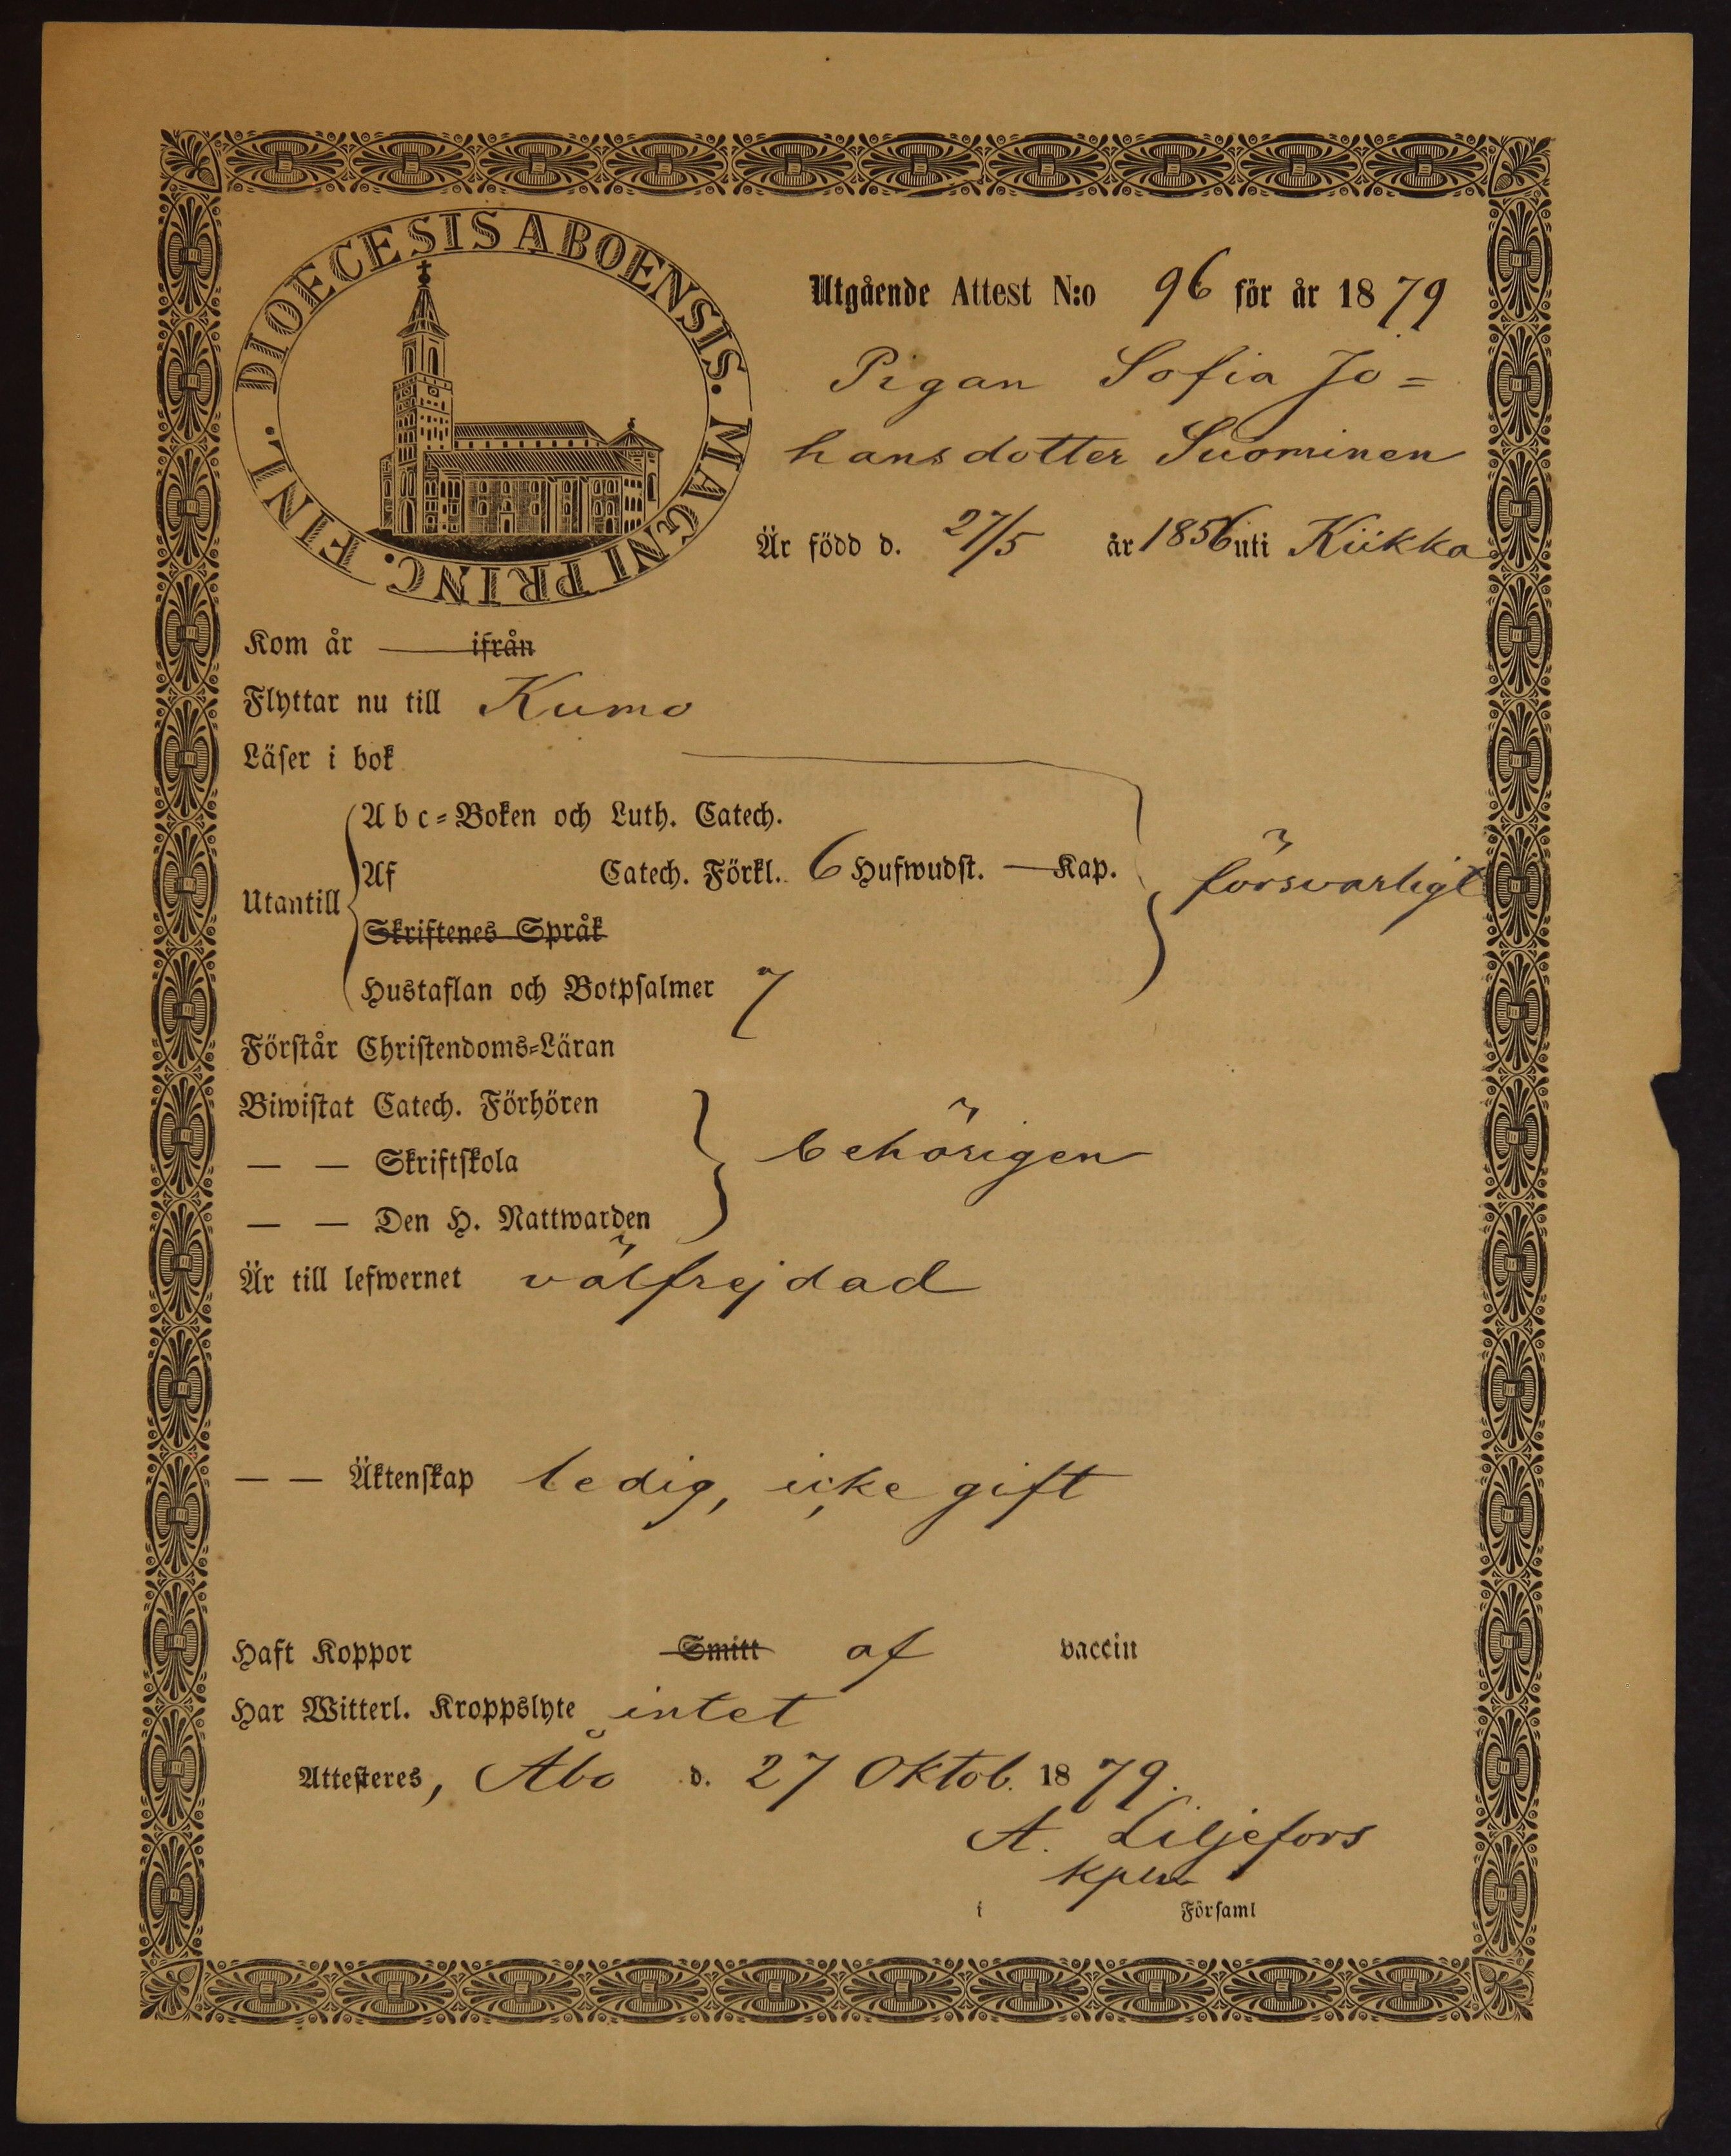 DIOECESIS ABOENSIS. MAGNI PRINC. FINL.
Utgående Attest N:o 96 för år 1879
Pigan Sofia Jo=
hansdotter Suominen
Är född d. 27/5 år 1856 uti Kiikka
Kom år — ifrån
Flyttar nu till Kumo
Läser i bok
Utantill
Abc=Boken och Luth. Catech.
Af Catech. Förkl. 6 Hufwudst. — Kap. försvarligt
Skriftenes Språk
Hustaflan och Botpsalmer 7
Förstår Christendoms=Läran
Biwistat Catech. Förhören
— — Skriftskola behörigen
— — Den H. Nattwarden
Är till lefwernet välfrejdad
— — Äktenskap ledig, icke gift
Haft Koppor Smitt af vaccin
Har Witterl. Kroppslyte intet
Attesteres, Åbo d. 27 Oktob. 1879.
A. Liljefors
i Församl